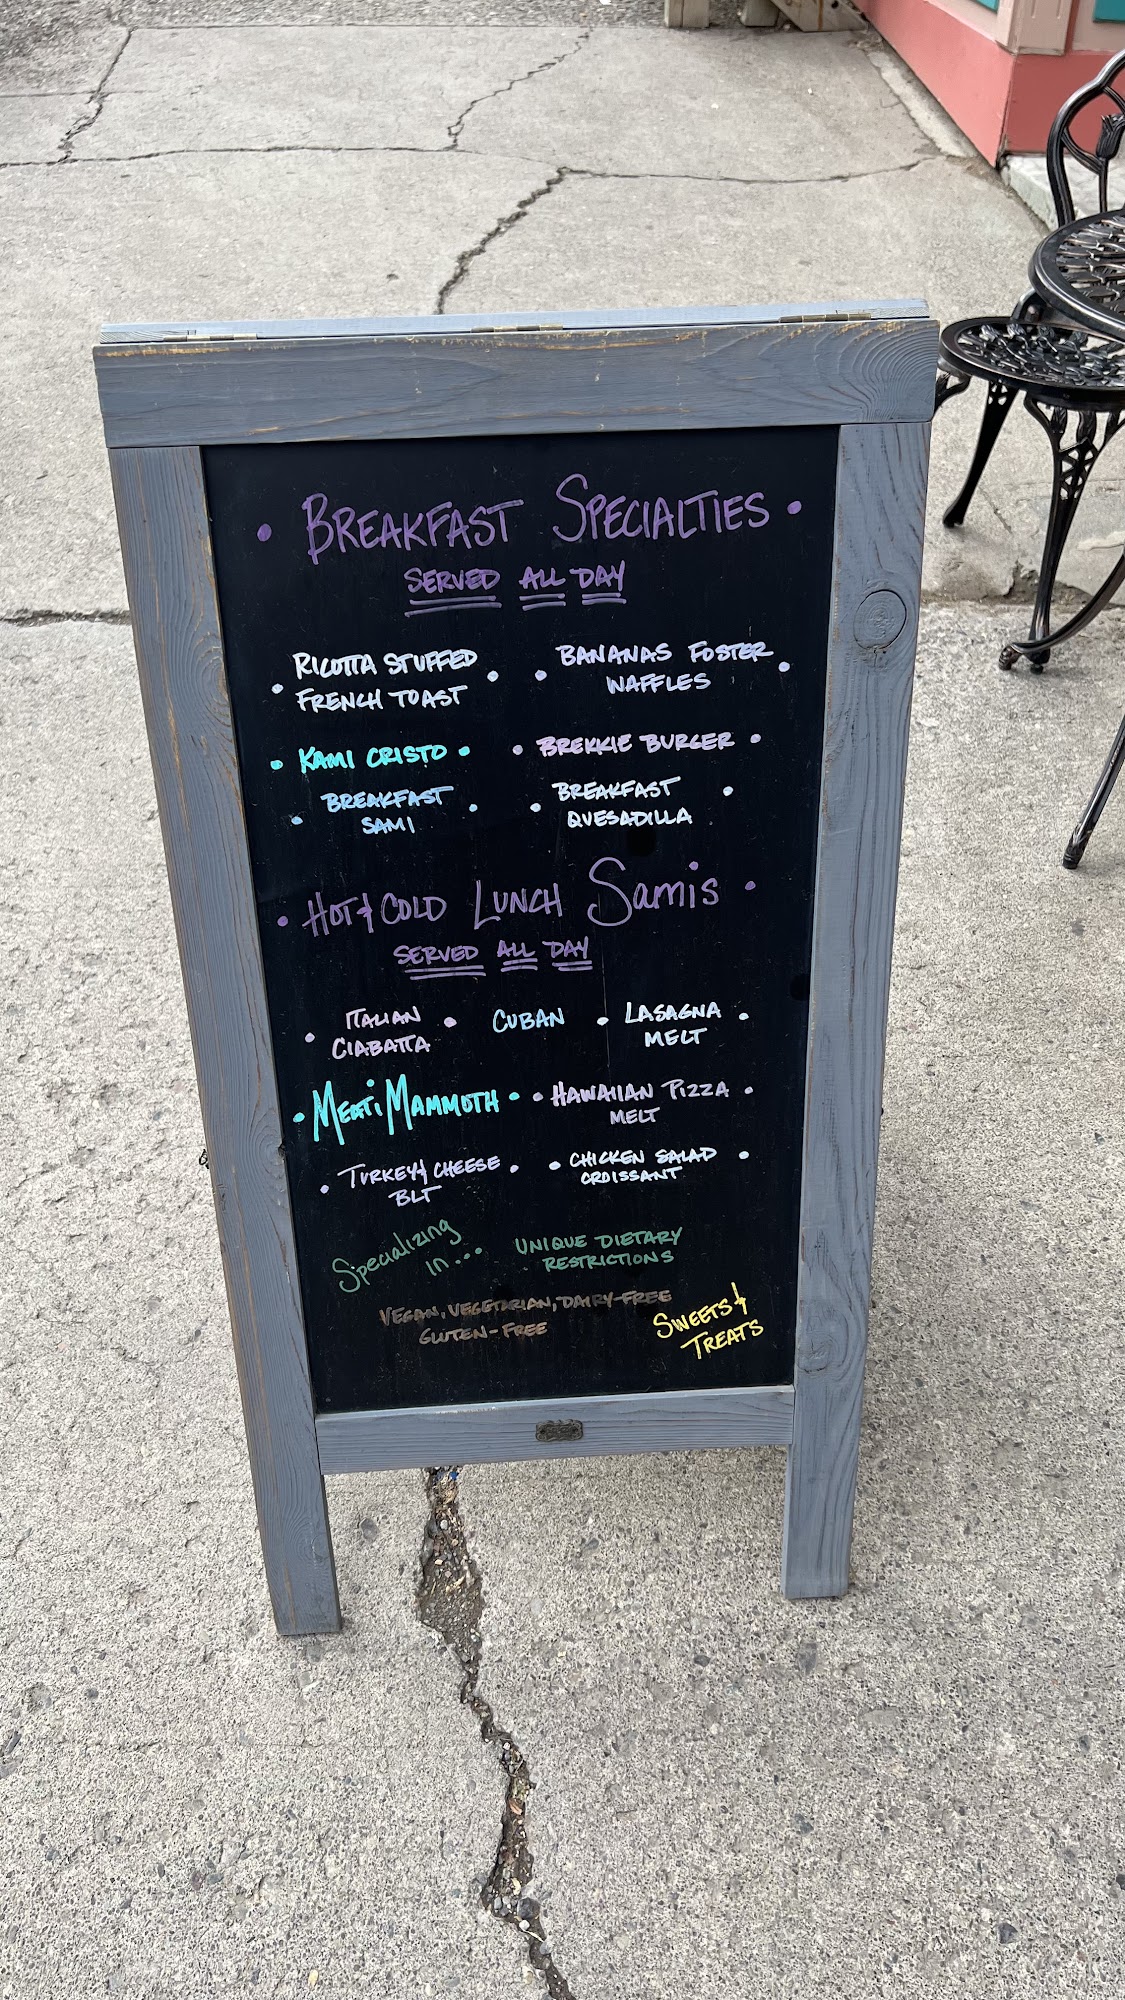 • BREAKFAST SPECIALTIES •
SERVED ALL DAY
• RICOTTA STUFFED •
FRENCH TOAST
• BANANAS FOSTER •
WAFFLES
• KAMI CRISTO •
• BREKKIE BURGER •
• BREAKFAST •
SAMI
• BREAKFAST •
QUESADILLA
• HOT & COLD LUNCH SAMIS •
SERVED ALL DAY
• ITALIAN •
CIABATTA
CUBAN
• LASAGNA •
MELT
• MEATI MAMMOTH •
• HAWAIIAN PIZZA •
MELT
• TURKEY & CHEESE •
BLT
• CHICKEN SALAD •
CROISSANT
Specializing
in...
UNIQUE DIETARY
RESTRICTIONS
VEGAN, VEGETARIAN, DAIRY-FREE
GLUTEN-FREE
SWEETS &
TREATS